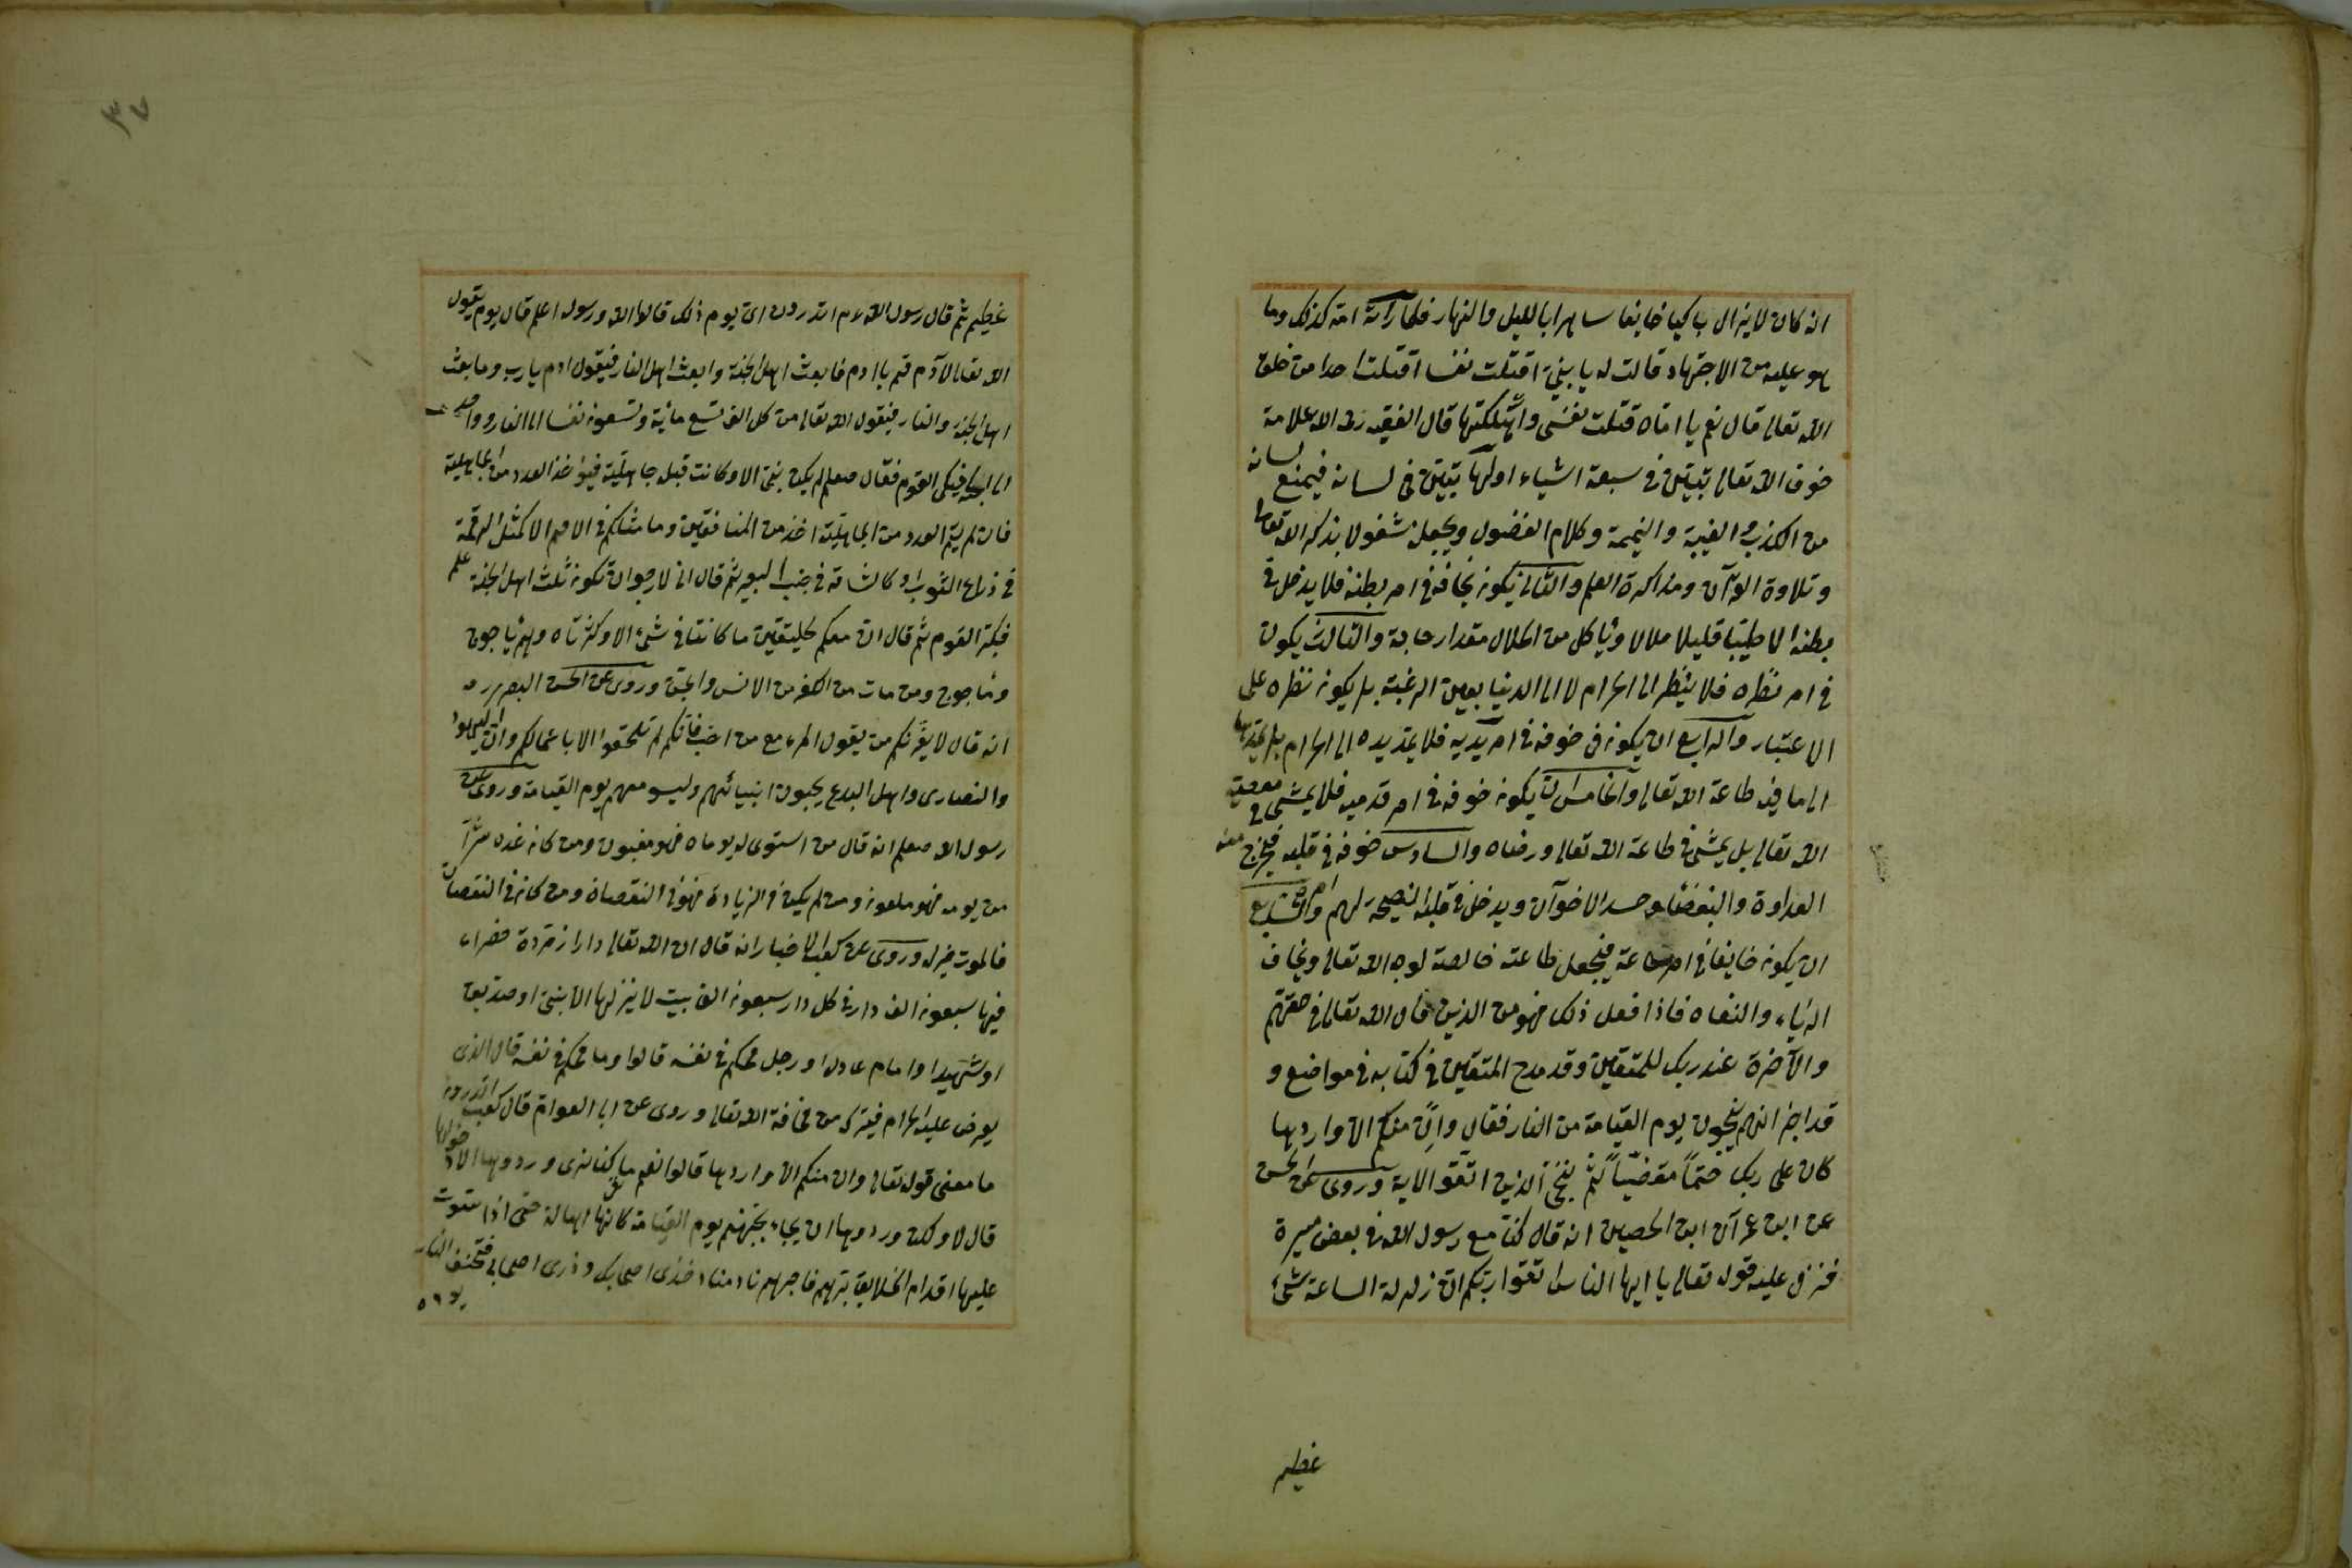 انه كان لا يزال باكيا خايفا ساهرا بالليل والنهار فلما رأت امه كذلك وما
هو عليه من الاجتهاد قالت له يا بني اقتلت نفسا اقتلت احدا من خلق
الله تعالى قال نعم يا اماه قتلت نفسى واهلكتها قال الفقيه رحمه الله علامة
خوف الله تعالى يتبين فى سبعة اشياء اولها يتبين فى لسانه فيمنع لسانه
من الكذب والغيبة والنميمة وكلام الفضول ويجعله شغولا بذكر الله تعالى
وتلاوة القرآن ومذاكرة العلم والثانى يكون يخاف فى امر بطنه فلا يدخل فى
بطنه الا طيبا قليلا حلالا ويأكل من الحلال مقدار حاجة والثالث يكون
فى امر نظره فلا ينظر الى الحرام لا الى الدنيا بعين الرغبة بل يكون نظره على
الاعتبار والرابع ان يكون فى خوفه فى امر يديه فلا يمد يده الى الحرام بل يمدها
الى ما فيه طاعة الله تعالى والخامس ان يكون خوفه فى امر قدميه فلا يمشى فى معصية
الله تعالى بل يمشى فى طاعة الله تعالى ورضاه والسادس خوفه فى قلبه فيخرج منه
العداوة والبغضاء وحسد الاخوان ويدخل فى قلبه النصيحة لهم والسابع
ان يكون خايفا فى امر طاعة فيجعل طاعته خالصة لوجه الله تعالى ويخاف
الرياء والنفاه فاذا فعل ذلك فهو من الذين قال الله تعالى فى حقهم
والآخرة عند ربك للمتقين وقد مدح المتقين فى كتابه فى مواضع و
قد اخبر انهم ينجون يوم القيامة من النار فقال وان منكم الا واردها
كان على ربك حتما مقضيا ثم ننجى الذين اتقوا الاية وروى عن الحسن
عن ابن عمرآن ابن الحصين انه قال كنا مع رسول الله فى بعض مسيرة
فنزل عليه قوله تعالى يا ايها الناس اتقوا ربكم ان زلزلة الساعة شئ
عظيم
٣٧
عظيم ثم قال رسول الله عم اتدرون اى يوم ذلك قالوا الله ورسوله اعلم قال يوم يقول
الله تعالى لآدم قم يا ادم فابعث اهل الجنة وابعث اهل النار فيقول ادم يا رب وما بعث
اهل الجنة والنار فيقول الله تعالى من كل الف تسع مائة وتسعون نفسا الى النار وواحد
الى الجنة فبكى القوم فقال صعلم لم يكن بنى الا وكانت قبله جاهلية فيؤخذ العدد من الجاهلية
فان لم يتم العدد من الجاهلية اخذ من المنافقين وما مثلكم فى الامم الا كمثل الرقمة
فى ذراع الثوب او كالشامة فى جنب البعير ثم قال انى لارجو ان تكون ثلث اهل الجنة
فكبر القوم ثم قال ان معكم لخليقتين ما كانتا فى شئ الا وكثرتاه وهم يأجوج
ومأجوج ومن مات من الكفر من الانس والجن وروى عن الحسن البصرى
انه قال لا يغرنكم من يقول المرء مع من احب فانكم لم تلحقوا الا باعمالكم وان اليهود
والنصارى واهل البدع يحبون انبيائهم وليسو معهم يوم القيامة وروى عن
رسول الله صعلم انه قال من استوى له يوماه فهو مغبون ومن كان غده شرا
من يومه فهو ملعون ومن لم يكن فى الزيادة فهو فى النقصان ومن كان فى النقصان
فالموت خير له وروى عن كعب الاخبار انه قال ان الله تعالى دارا زمردة خضراء
فيها سبعون الف دار فى كل دار سبعون الف بيت لا ينزلها الا نبى او صديق
او شهيدا وامام عادل او رجل محكم فى نفسه قالوا وما محكم فى نفسه قال الذى
يعرض عليه الحرام فيتركه من مخافة الله تعالى وروى عن ابى العوام قال كعب اتدرون
ما معنى قوله تعالى وان منكم الا واردها قالوا نعم ما كنا نرى ورودها الا دخولها
قال لا ولكن ورودها ان يجاء بجهنم يوم القيامة كانها اهالة حتى اذا ستوت
عليها اقدام الخلايق برهم فاجرهم نادمناد خذى اصحابك وذرى اصحابى فتخسف النار